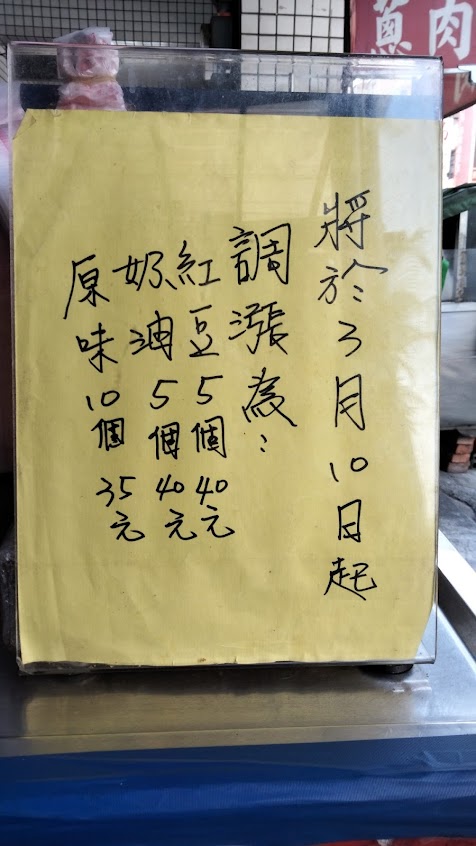 將於3月10日起
調漲為：
紅豆5個40元
奶油5個40元
原味10個35元
蔥肉